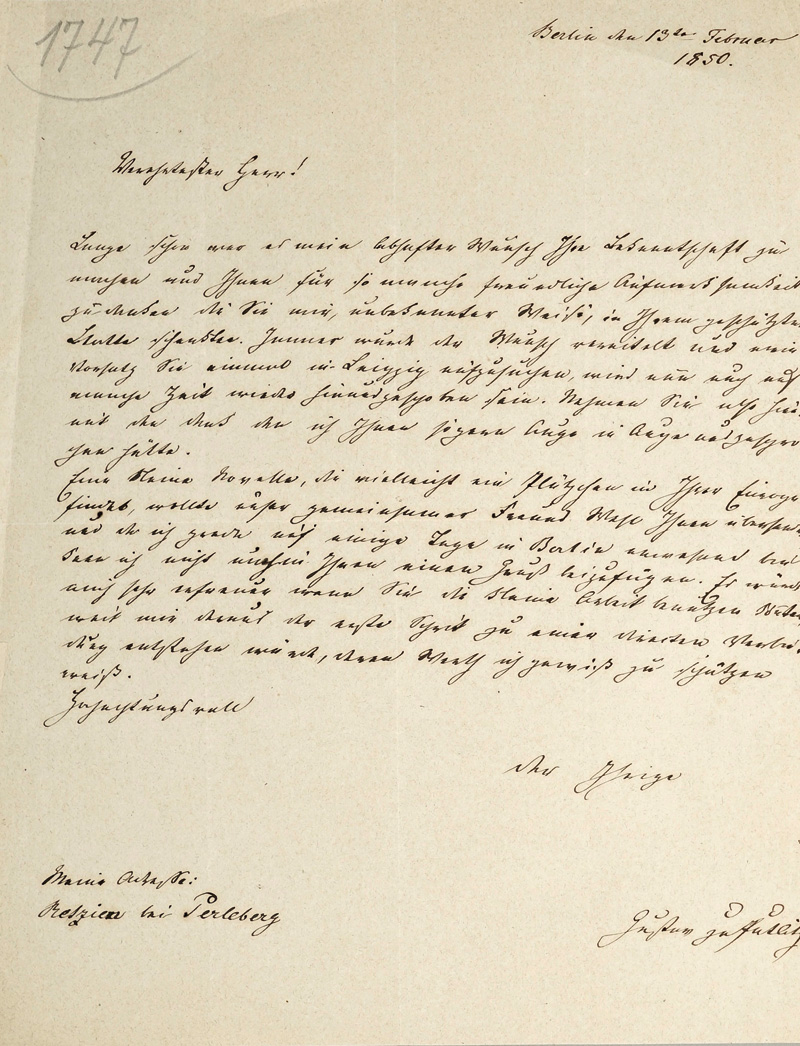 1747
Berlin den 13ten Februar
1850.
Verehrtester Herr!
Lange schon war es mein lebhafter Wunsch Ihre Bekanntschaft zu
machen und Ihnen für so manche freundliche Aufmerksamkeit
zu danken die Sie mir, unbekannter Weise, in Ihrem geschätzten
Blatte schenkten. Immer wurde der Wunsch vereitelt und mein
Vorsatz Sie einmal in Leipzig aufzusuchen, wird nun auch auf
manche Zeit wieder hinausgeschoben sein. Nehmen Sie also hier
mit den Dank den ich Ihnen so gern Auge in Auge ausgespro
chen hätte.
Eine kleine Novelle, die vielleicht ein Plätzchen in Ihrer Europa
findet, wollte unser gemeinsamer Freund Wehl Ihnen übersen
und da ich gerade auf einige Tage in Berlin anwesend bin
kann ich nicht umhin Ihnen einen Gruß beizufügen. Es würde
mich sehr erfreuen wenn Sie die kleine Arbeit benutzen könten
weil mir daraus der erste Schrit zu einer directen Verbin
dung entstehen würde, deren Werth ich gewiß zu schätzen
weiß.
Hochachtungsvoll
der Ihrige
Meine Adresse:
Retzien bei Perleberg
Gustav zu Putlitz